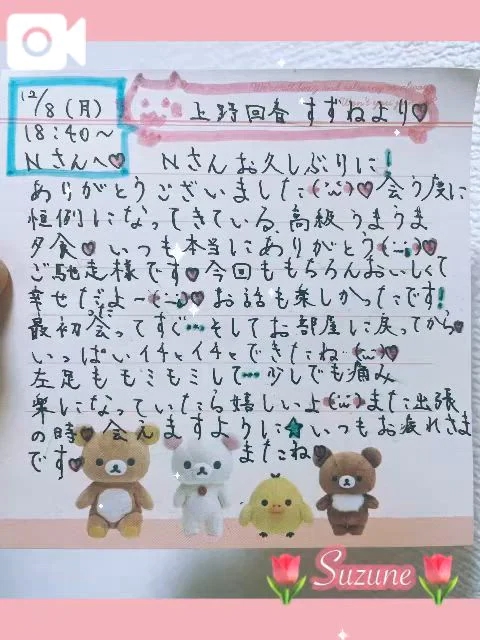 12/8(月)
18:40~
Nさんへ♡
上野回春 すずねより♡
Nさんお久しぶりに!
ありがとうございました(¨)♡会う度に
恒例になってきている、高級うまうま
夕食♡いつも本当にありがとう(¨)♡
ご馳走様です♡今回ももちろんおいしくて
幸せだよー(¨)♡お話も楽しかったです!
最初会ったってすぐ…そしてお部屋に戻ってから♡
いっぱいイチャイチャできたね(¨)♡
左足もモミモミして…少しでも痛み
楽になっていたら嬉しいよ(¨)また出張
の時♡会えますように☆いつもお疲れさま
です♡
またね♡
Suzune